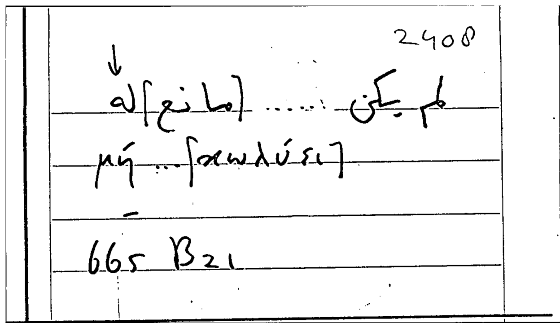 2408
↓
لم يكن ...... [مانع] له
μή ... [κωλύσει]
–
665 B21